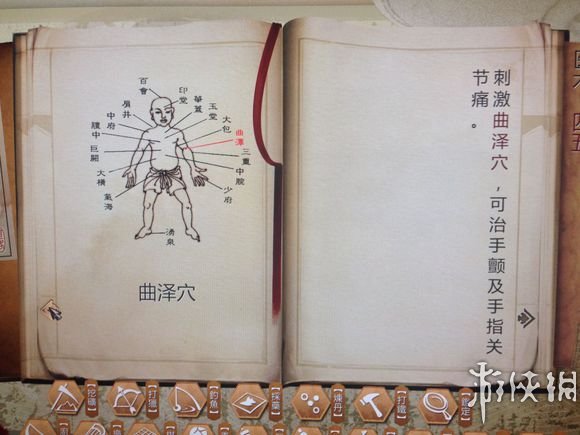 百會
印堂
華蓋
玉堂
大包
曲澤
三重
中脘
少府
肩井
中府
膻中
巨闕
大橫
氣海
湧泉
曲泽穴
刺激曲泽穴，可治手颤及手指关
节痛。
【挖礦】
【打獵】
【釣魚】
【採藥】
【煉丹】
【打鐵】
【鑑定】
游侠網